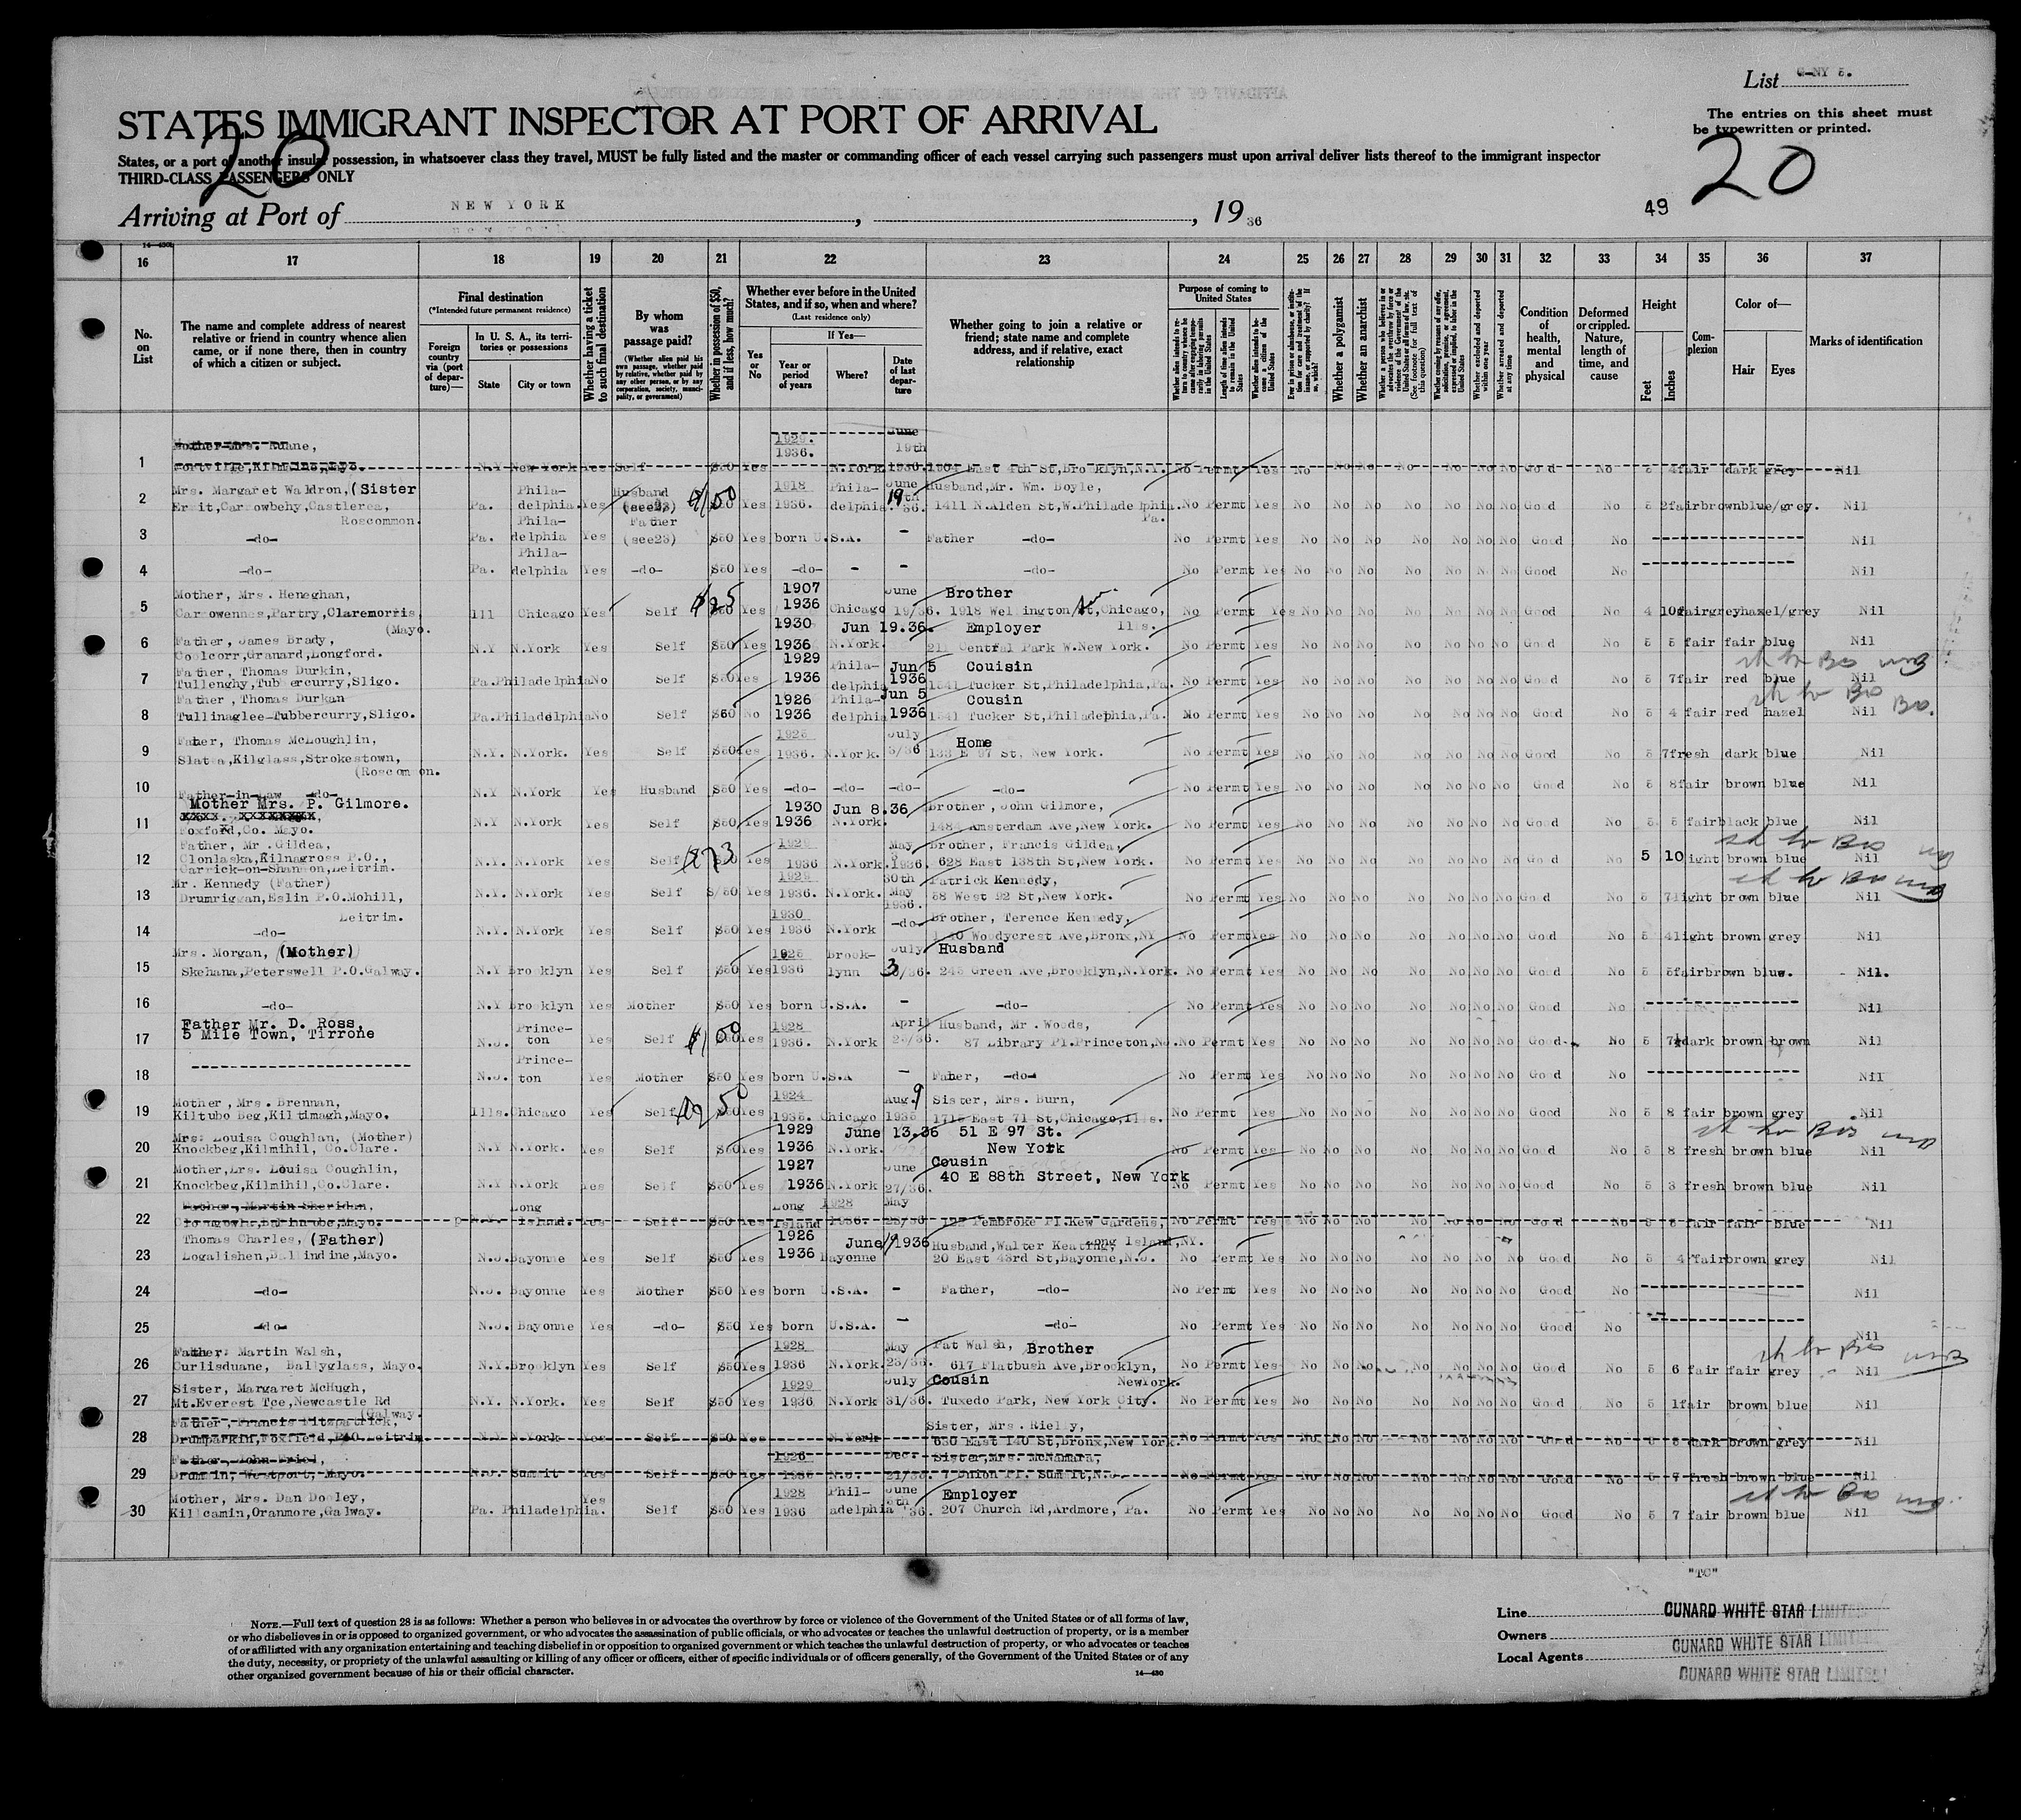 List G-NY 5.
STATES IMMIGRANT INSPECTOR AT PORT OF ARRIVAL
The entries on this sheet must
be typewritten or printed.
20
20
States, or a port of another insular possession, in whatsoever class they travel, MUST be fully listed and the master or commanding officer of each vessel carrying such passengers must upon arrival deliver lists thereof to the immigrant inspector
THIRD-CLASS PASSENGERS ONLY
Arriving at Port of NEW YORK , , 19 36
49
16 17 18 19 20 21 22 23 24 25 26 27 28 29 30 31 32 33 34 35 36 37
No. on List
The name and complete address of nearest relative or friend in country whence alien came, or if none there, then in country of which a citizen or subject.
Final destination
(*Intended future permanent residence)
Foreign country via (port of departure)—
In U. S. A., its territories or possessions
State City or town
Whether having a ticket to such final destination
By whom was passage paid?
(Whether alien paid his own passage, whether paid by relative, whether paid by any other person, or by any corporation, society, municipality, or government)
Whether in possession of $50, and if less, how much?
Whether ever before in the United States, and if so, when and where?
(Last residence only)
Yes or No
If Yes—
Year or period of years
Where?
Date of last departure
Whether going to join a relative or friend; state name and complete address, and if relative, exact relationship
Purpose of coming to United States
Whether a polygamist
Whether an anarchist
Condition of health, mental and physical
Deformed or crippled. Nature, length of time, and cause
Height
Feet Inches
Complexion
Color of—
Hair Eyes
Marks of identification
1 N.Y New York Yes Self $50 Yes 1929. 1936. N.York June 19th 1936. 1504 East 4th St, Brooklyn, N.Y. No Permt Yes No No No No No No No Good No 5 4 fair dark grey Nil
2 Mrs. Margaret Waldron, (Sister
Castlerea, Roscommon. Pa. Philadelphia. Yes Husband (see23) $50 Yes 1918 1936. Philadelphia June 19th 36. Husband, Mr. Wm. Doyle,
1411 N.Alden St, W.Philadelphia. Pa. No Permt Yes No No No No No No No Good No 5 2 fair brown blue/grey. Nil
3 -do- Pa. Philadelphia Yes Father (see23) $50 Yes born U.S.A. - Father -do- No Permt Yes No No No No No No No Good No Nil
4 -do- Pa. Philadelphia Yes -do- $50 Yes -do- - - -do- No Permt Yes No No No No No No No Good No Nil
5 Mother, Mrs. Heneghan,
Partry, Claremorris, (Mayo. Ill Chicago Yes Self $25 Yes 1907 1936 Chicago June 19/36. Brother
1918 Wellington Chicago, Ills. No Permt Yes No No No No No No No Good No 4 10 fair grey hazel/grey Nil
6 Father, James Brady,
Coolcorr, Granard, Longford. N.Y N.York Yes Self $50 Yes 1930 1936 N.York. Jun 19.36. Employer
211 Central Park W. New York. No Permt Yes No No No No No No No Good No 5 5 fair fair blue Nil
7 Father, Thomas Durkin,
Tullenghy, Tubbercurry, Sligo. Pa. Philadelphia No Self $50 Yes 1929 1936 Philadelphia Jun 5 1936 Couisin
1541 Tucker St, Philadelphia, Pa. No Permt Yes No No No No No No No Good No 5 7 fair red blue Nil
8 Father, Thomas Durkan
Tullinaglee-Tubbercurry, Sligo. Pa. Philadelphia No Self $50 No 1926 1936 Philadelphia Jun 5 1936 Cousin
1541 Tucker St, Philadelphia, Pa. No Permt Yes No No No No No No No Good No 5 4 fair red hazel Nil
9 Father, Thomas McLoughlin,
Kilglass, Strokestown, (Roscommon. N.Y. N.York. Yes Self $50 Yes 1925 1936. N.York. July 3/36 Home
133 E 97 St. New York. No Permt Yes No No No No No No No Good No 5 7 fresh dark blue Nil
10 Father-in-Law -do- N.Y N.York Yes Husband $50 Yes -do- -do- -do- -do- No Permt Yes No No No No No No No Good No 5 8 fair brown blue Nil
11 Mother Mrs. P. Gilmore.
Foxford, Co. Mayo. N.Y N.York Yes Self $50 Yes 1930 1936 N.York. Jun 8.36 Brother, John Gilmore,
1484 Amsterdam Ave, New York. No Permt Yes No No No No No No No Good No 5 5 fair black blue Nil
12 Father, Mr. Gildea,
Clonlaska, Kilnagross P.O.,
Carrick-on-Shannon, Leitrim. N.Y. N.York Yes Self Yes 1929 1936 N.York May 1936. Brother, Francis Gildea,
628 East 138th St, New York. No Permt Yes No No No No No No No Good No 5 10 light brown blue Nil
13 Mr. Kennedy (Father)
Drumriggan, Eslin P.O. Mohill, Leitrim. N.Y. N.York Yes Self $50 Yes 1929 1936. N.York. 30th May 1936. Patrick Kennedy,
58 West 92 St, New York. No Permt Yes No No No No No No No Good No 5 7 light brown blue Nil
14 -do- N.Y. N.York Yes Self $50 Yes 1930 1936 N.York -do- Brother, Terence Kennedy,
Woodycrest Ave, Bronx, NY No Permt Yes No No No No No No No Good No 5 4 light brown grey Nil
15 Mrs. Morgan, (Mother)
Skehana, Peterswell P.O. Galway. N.Y Brooklyn Yes Self $50 Yes 1925 1936 Brooklynn July 3/36. Husband
245 Green Ave, Brooklyn, N.York. No Permt Yes No No No No No No No Good No 5 5 fair brown blue. Nil.
16 -do- N.Y Brooklyn Yes Mother $50 Yes born U.S.A. - -do- No Permt Yes No No No No No No No Good No Nil
17 Father Mr. D. Ross,
5 Mile Town, Tirrone N.J. Princeton Yes Self Yes 1928 1936. N.York April 25/36. Husband, Mr. Woods,
87 Library Pl. Princeton, No Permt Yes No No No No No No No Good No 5 7½ dark brown brown Nil
18 N.J. Princeton Yes Mother $50 Yes born U.S.A - Faher, -do- No Permt Yes No No No No No No No Good No Nil
19 Mother, Mrs. Brennan,
Kiltubo Beg, Kiltimagh, Mayo. Ills. Chicago Yes Self Yes 1924 1935. Chicago Aug. 9 1935 Sister, Mrs. Burn,
1715 East 71 St, Chicago, Ills. No Permt Yes No No No No No No No Good No 5 8 fair brown grey Nil
20 Mrs. Louisa Coughlan, (Mother)
Knockbeg, Kilmihil, Co. Clare. N.Y N.York. Yes Self $50 Yes 1929 1936 N.York. June 13.36 51 E 97 St.
New York No Permt Yes No No No No No No No Good No 5 8 fresh brown blue Nil
21 Mother, Mrs. Louisa Coughlin,
Knockbeg, Kilmihil, Co. Clare. N.Y N.York Yes Self $50 Yes 1927 1936 N.York June 27/36. Cousin
40 E 88th Street, New York No Permt Yes No No No No No No No Good No 5 3 fresh brown blue Nil
22 Father, Martin Sheridan,
Mayo. N.Y. Long Island. Yes Self $50 Yes 1928 1936. Long Island May 23/36 Pembroke Pl. Kew Gardens, Long Island, NY. No Permt Yes No No No No No No No Good No 5 fair fair blue Nil
23 Thomas Charles, (Father)
Logalishen, Ballindine, Mayo. N.J. Bayonne Yes Self $50 Yes 1926 1936 Bayonne June 19 1936 Husband, Walter Keating,
20 East 43rd St, Bayonne, N.J. No Permt Yes No No No No No No No Good No 5 4 fair brown grey Nil
24 -do- N.J. Bayonne Yes Mother $50 Yes born U.S.A. - Father, -do- No Permt Yes No No No No No No No Good No Nil
25 -do- N.J. Bayonne Yes -do- $50 Yes born U.S.A. - -do- No Permt Yes No No No No No No No Good No Nil
26 Father: Martin Walsh,
Curlisduane, Ballyglass, Mayo. N.Y. Brooklyn Yes Self $50 Yes 1928 1936 N.York. May 23/36. Pat Walsh, Brother
617 Flatbush Ave, Brooklyn, NewYork. No Permt Yes No No No No No No No Good No 5 6 fair fair grey Nil
27 Sister, Margaret McHugh,
Mt. Everest Tce, Newcastle Rd (Galway. N.Y. N.York. Yes Self $50 Yes 1929 1936 N.York July 31/36. Cousin
Tuxedo Park, New York City. No Permt Yes No No No No No No No Good No 5 1 fair brown blue Nil
28 Father, Francis Fitzpatrick,
Drumparkin, Foxfield, P.O. Leitrim. N.Y N.York Yes Self $50 Yes N.York Sister, Mrs. Rielly,
630 East 140 St, Bronx, New York. No Permt Yes No No No No No No No Good No 5 dark brown grey Nil
29 Father, John Friel,
Westport, Mayo. N.J. Summit Yes Self $50 Yes 1926 1936 N.J. Dec. 21/36. Sister, Mrs. McNamara,
7 Union Pl. Summit, N.J. No Permt Yes No No No No No No No Good No 5 7 fresh brown blue Nil
30 Mother, Mrs. Dan Dooley,
Killcamin, Oranmore, Galway. Pa. Philadelphia. Yes Self $50 Yes 1928 1936 Philadelphia June 5th '36. Employer
207 Church Rd, Ardmore, Pa. No Permt Yes No No No No No No No Good No 5 7 fair brown blue Nil
"TC"
NOTE.—Full text of question 28 is as follows: Whether a person who believes in or advocates the overthrow by force or violence of the Government of the United States or of all forms of law,
or who disbelieves in or is opposed to organized government, or who advocates the assassination of public officials, or who advocates or teaches the unlawful destruction of property, or is a member
of or affiliated with any organization entertaining and teaching disbelief in or opposition to organized government or which teaches the unlawful destruction of property, or who advocates or teaches
the duty, necessity, or propriety of the unlawful assaulting or killing of any officer or officers, either of specific individuals or of officers generally, of the Government of the United States or of any
other organized government because of his or their official character.
14—430
Line CUNARD WHITE STAR LIMITED
Owners CUNARD WHITE STAR LIMITED
Local Agents CUNARD WHITE STAR LIMITED